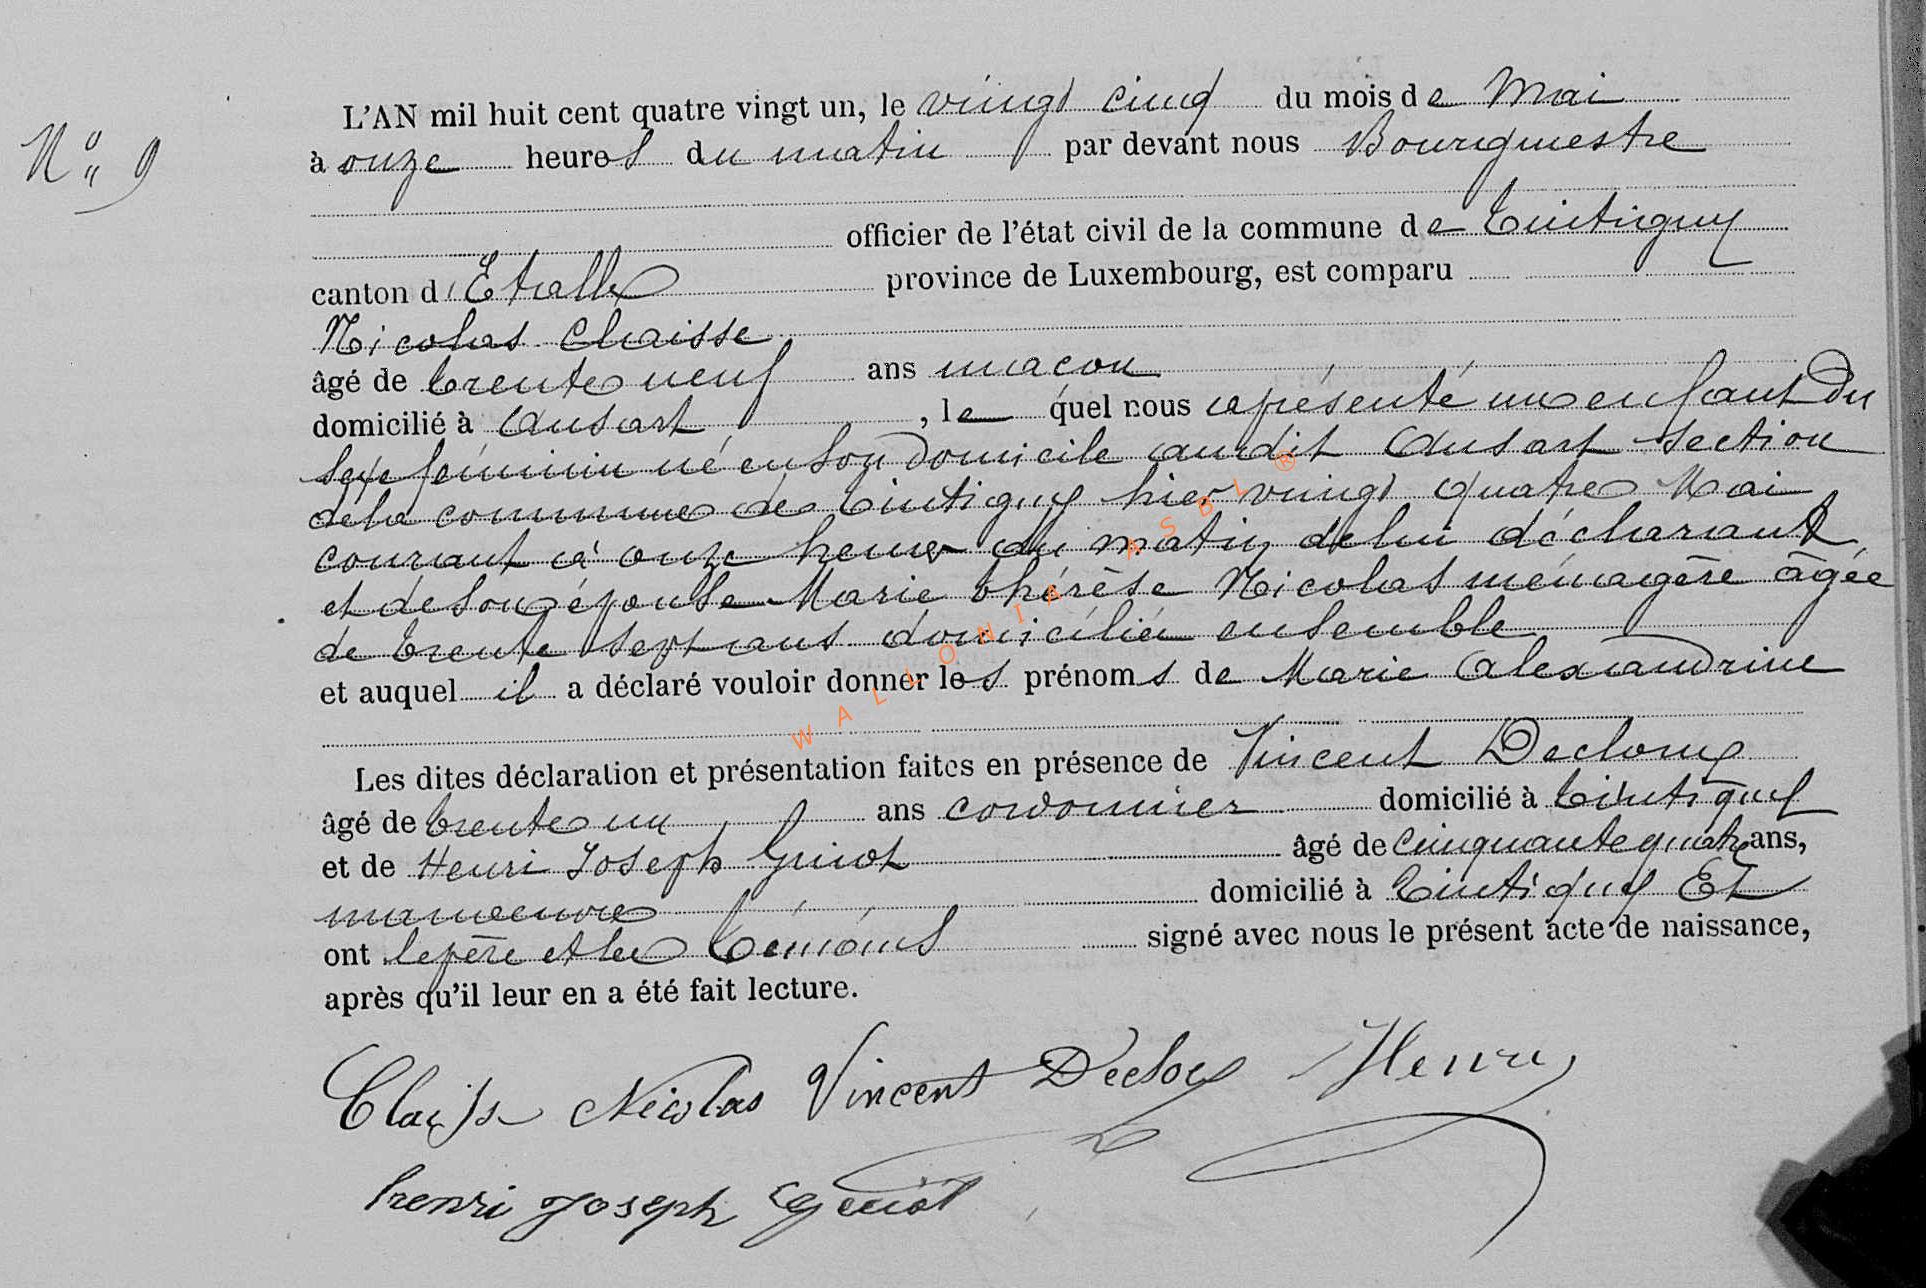 L'AN mil huit cent quatre vingt un, le vingt cinq du mois de Mai
N° 9
à onze heures du matin par devant nous Bourgmestre
officier de l'état civil de la commune de Tintigny
canton d'Etalle province de Luxembourg, est comparu
Nicolas Claisse
âgé de trente neuf ans maçon
domicilié à Ansart, le quel nous a présenté un enfant Du
sexe féminin né en son Domicile audit Ansart section
de la commune de Tintigny hier vingt quatre Mai
courant à onze heures du matin de lui déclarant
et de son épouse Marie thérèse Nicolas ménagère âgée
de trente sept ans domiciliés ensemble
et auquel il a déclaré vouloir donner les prénoms de Marie Alexandrine
Les dites déclaration et présentation faites en présence de Vincent Decloux
âgé de trente un ans cordonnier domicilié à Tintigny
et de Henri Joseph Guiot âgé de cinquante quatre ans,
manoeuvre domicilié à Tintigny Et
ont le père et les témoins signé avec nous le présent acte de naissance,
après qu'il leur en a été fait lecture.
Claisse Nicolas Vincent Decloux Henry
henri joseph Guiot
WALLONIA ASBL ®